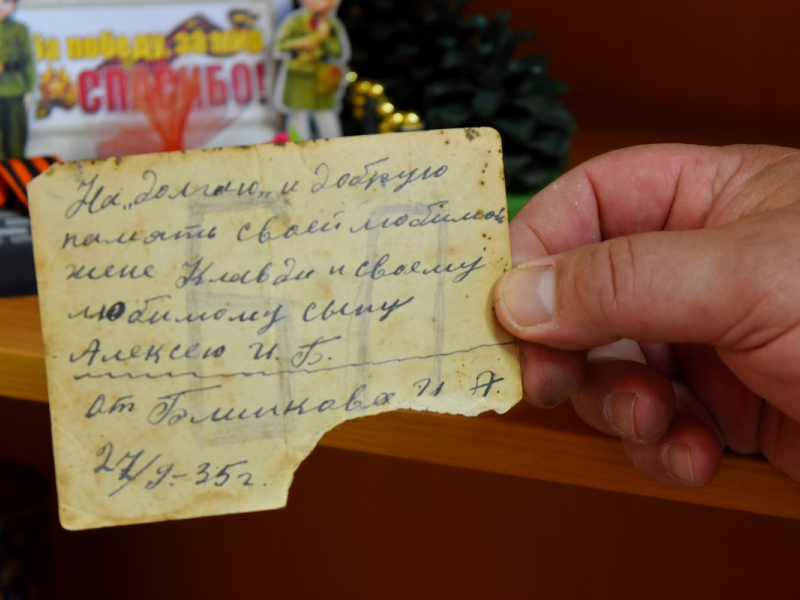 За победу, за мир
СПАСИБО!
На „долгаю„ и добрую
память своей любимой
жене Клавди и своему
любимому сыну
Алексею И. Б.
от Блинкова И. А.
27/9.-35г.
БП